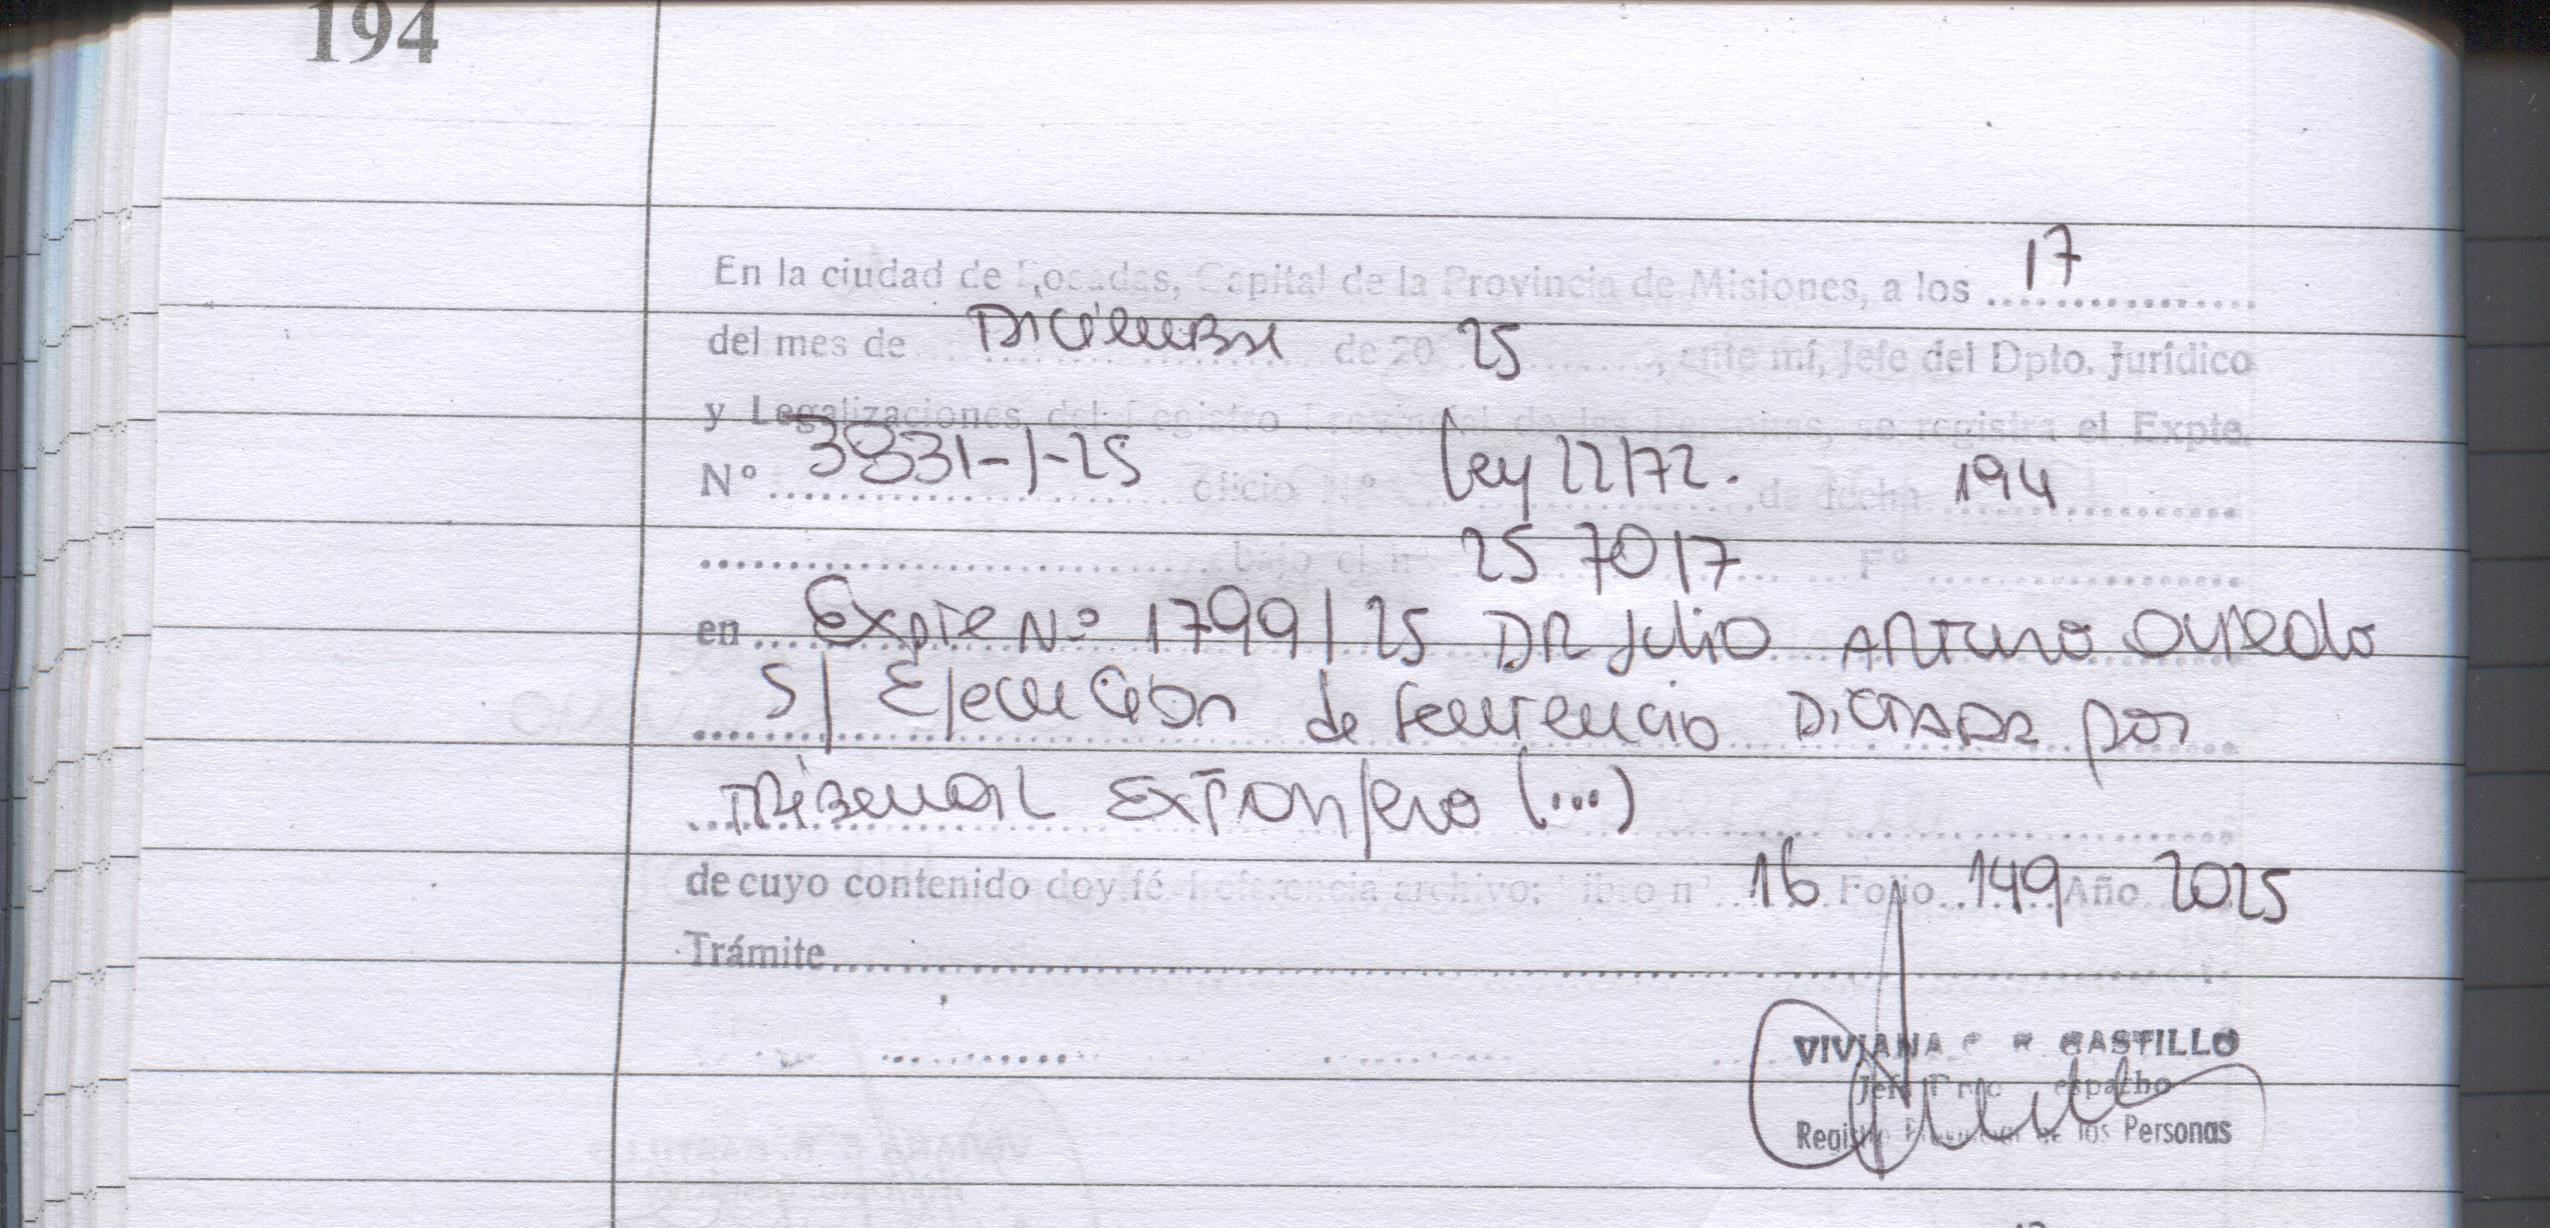 194
En la ciudad de Posadas, Capital de la Provincia de Misiones, a los 17
del mes de Diciembre de 20 25, ante mí, Jefe del Dpto. Jurídico
y Legalizaciones del Registro Provincial de las Personas, se registra el Expte.
Nº 3831-1-25 oficio Nº Ley 22172. de fecha 194
bajo el nº 25 7017 Fº
en Expte Nº 1799/25 DR Julio Arturo Oviedo
S/ Ejecución de sentencia DICTADA por
Tribunal Extranjero (...)
de cuyo contenido doy fé. Referencia archivo: Libro nº 16 Folio 149 Año 2025
Trámite
VIVIANA R CASTILLO
Jefe Dpto Despacho
Registro Provincial de las Personas